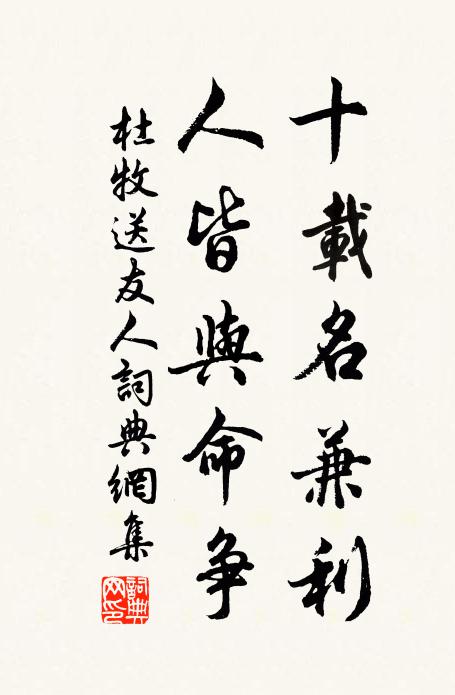 十載名兼利
人皆與命争
杜牧送友人詞典網集
詞典網印